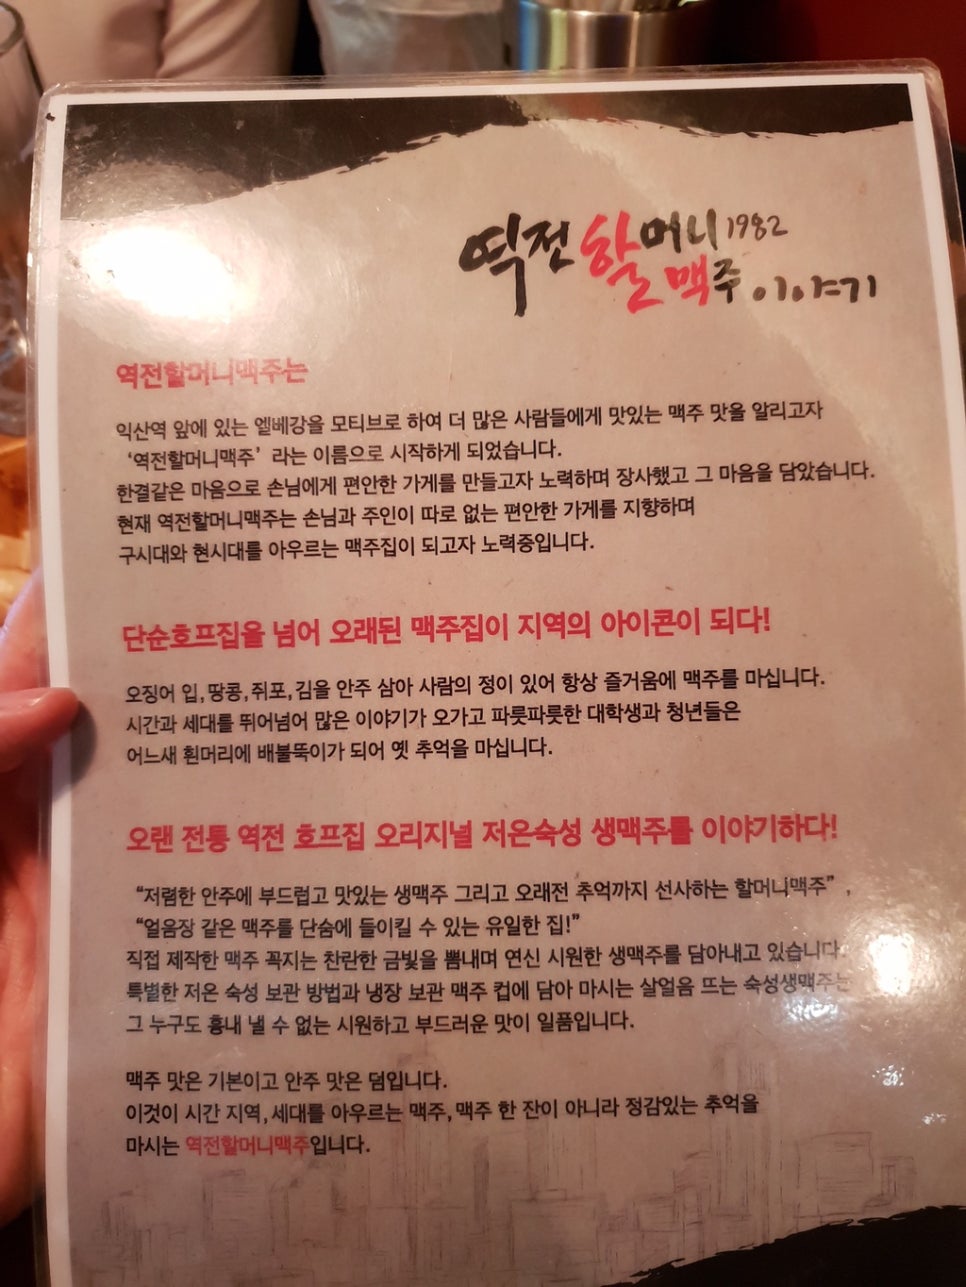 역전할머니1982
맥주 이야기
역전할머니맥주는
익산역 앞에 있는 엘베강을 모티브로 하여 더 많은 사람들에게 맛있는 맥주 맛을 알리고자
‘역전할머니맥주’ 라는 이름으로 시작하게 되었습니다.
한결같은 마음으로 손님에게 편안한 가게를 만들고자 노력하며 장사했고 그 마음을 담았습니다.
현재 역전할머니맥주는 손님과 주인이 따로 없는 편안한 가게를 지향하며
구시대와 현시대를 아우르는 맥주집이 되고자 노력중입니다.
단순호프집을 넘어 오래된 맥주집이 지역의 아이콘이 되다!
오징어 입, 땅콩, 쥐포, 김을 안주 삼아 사람의 정이 있어 항상 즐거움에 맥주를 마십니다.
시간과 세대를 뛰어넘어 많은 이야기가 오가고 파룻파룻한 대학생과 청년들은
어느새 흰머리에 배불뚝이가 되어 옛 추억을 마십니다.
오랜 전통 역전 호프집 오리지널 저온숙성 생맥주를 이야기하다!
“저렴한 안주에 부드럽고 맛있는 생맥주 그리고 오래전 추억까지 선사하는 할머니맥주” ,
“얼음장 같은 맥주를 단숨에 들이킬 수 있는 유일한 집!”
직접 제작한 맥주 꼭지는 찬란한 금빛을 뽐내며 연신 시원한 생맥주를 담아내고 있습니다.
특별한 저온 숙성 보관 방법과 냉장 보관 맥주 컵에 담아 마시는 살얼음 뜨는 숙성생맥주는
그 누구도 흉내 낼 수 없는 시원하고 부드러운 맛이 일품입니다.
맥주 맛은 기본이고 안주 맛은 덤입니다.
이것이 시간 지역, 세대를 아우르는 맥주, 맥주 한 잔이 아니라 정감있는 추억을
마시는 역전할머니맥주입니다.